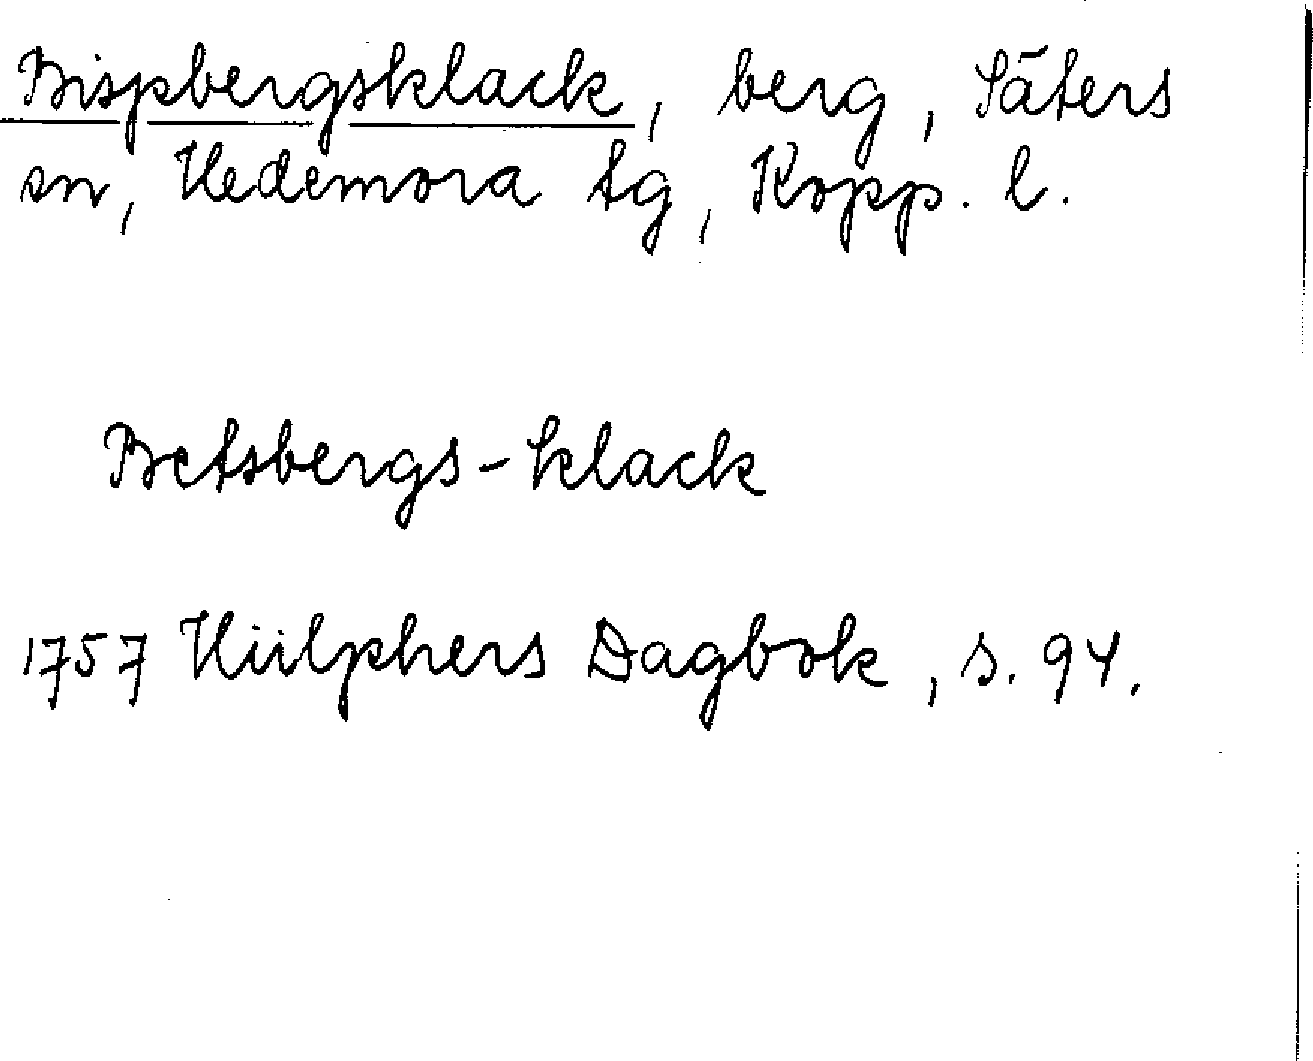 Bispbergsklack, berg, Säters
sn, Hedemora tg, Kopp. l.
Betsbergs-klack
1757 Hülphers Dagbok, s. 94.